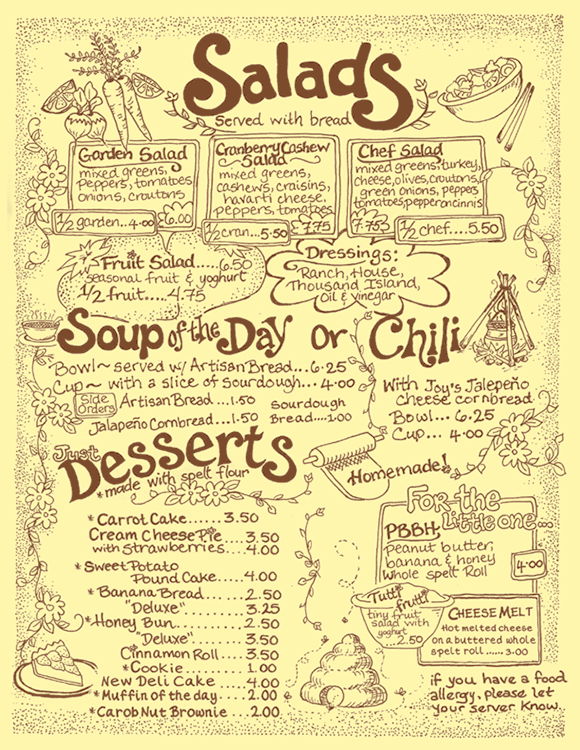 Salads
Served with bread
Garden Salad
mixed greens,
Peppers, tomatoes
onions, croutons
1/2 garden..4.00
6.00
Cranberry Cashew
Salad
mixed greens,
cashews, craisins,
havarti cheese,
peppers, tomatoes
1/2 cran...5.50
7.75
Chef Salad
mixed greens, turkey,
cheese, olives, croutons,
green onions, peppers
tomatoes, pepperoncinnis
7.75
1/2 chef....5.50
Fruit Salad....6.50
seasonal fruit & yoghurt
1/2 fruit....4.75
Dressings:
Ranch, House,
Thousand Island,
Oil & Vinegar
Soup of the Day or Chili
Bowl~ served w/ Artisan Bread...6.25
Cup~ with a slice of Sourdough...4.00
Side Orders
Artisan Bread...1.50
Jalapeño Cornbread...1.50
Sourdough
Bread....1.00
With Joy's Jalepeño
cheese cornbread
Bowl... 6.25
Cup... 4.00
Just
Desserts
*made with spelt flour
Homemade!
*Carrot Cake......3.50
Cream Cheese Pie...3.50
with strawberries...4.00
*Sweet Potato
Pound Cake....4.00
*Banana Bread........2.50
"Deluxe".........3.25
*Honey Bun...........2.50
"Deluxe".......3.50
Cinnamon Roll.....3.50
*Cookie...........1.00
New Deli Cake....4.00
*Muffin of the day....2.00
*Carob Nut Brownie...2.00
For the
Little one...
PBBH,
peanut butter,
banana & honey
Whole spelt Roll
4.00
Tutti
frutti
tiny fruit
salad with
yoghurt
..2.50
Cheese Melt
Hot melted cheese
on a buttered whole
spelt roll......3.00
if you have a food
allergy, please let
your server know.